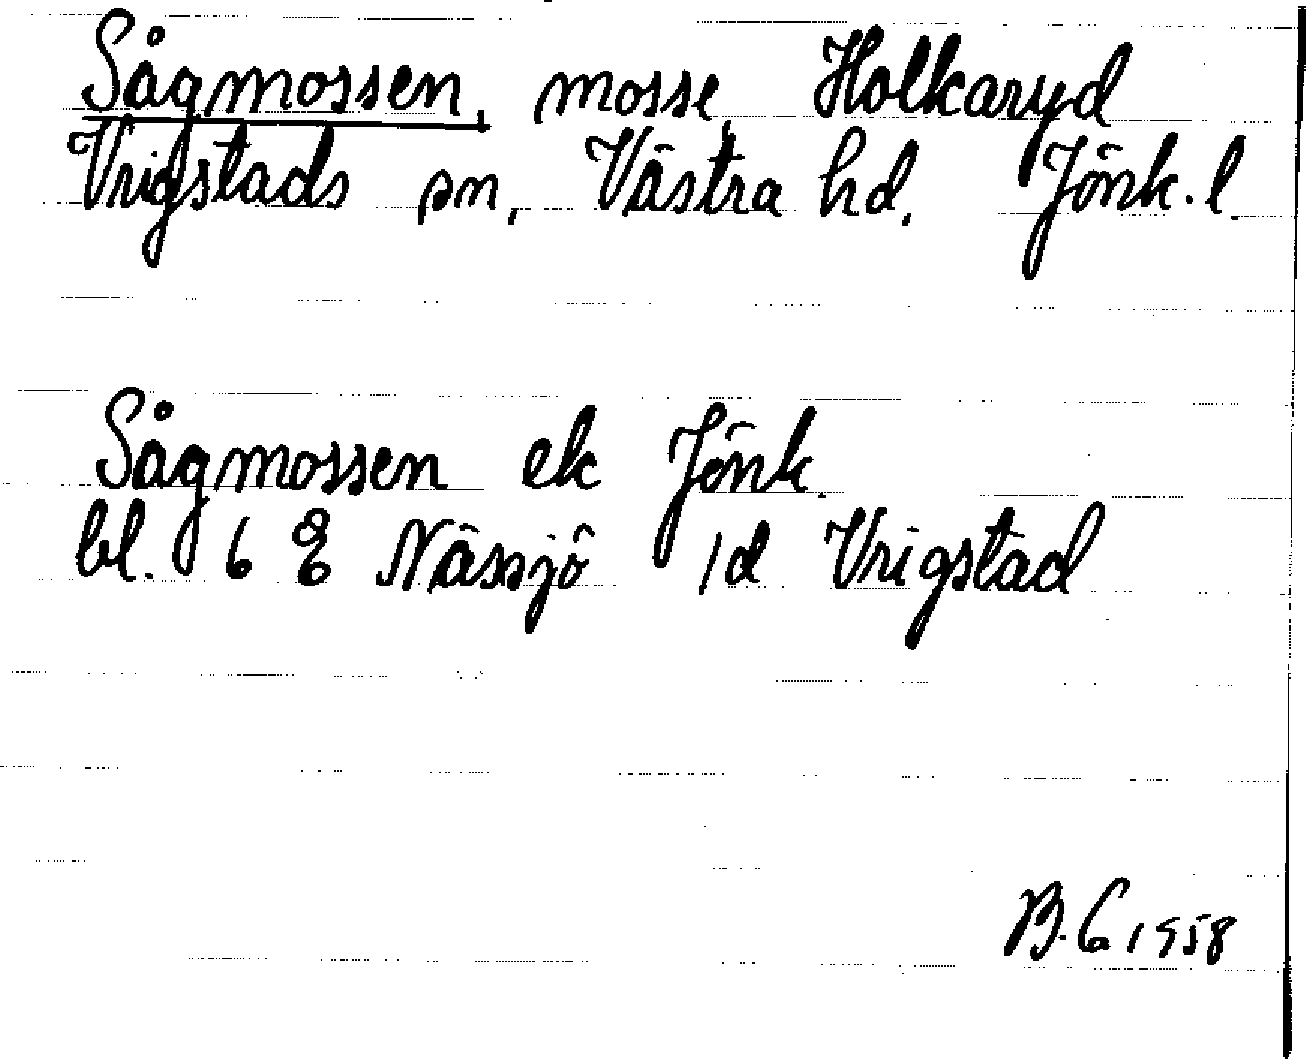 Sågmossen, mosse, Holkaryd
Vrigstads sn, Västra hd. Jönk. l.
Sågmossen ek Jönk.
bl. 6 E Nässjö 1d Vrigstad
B.G 1958